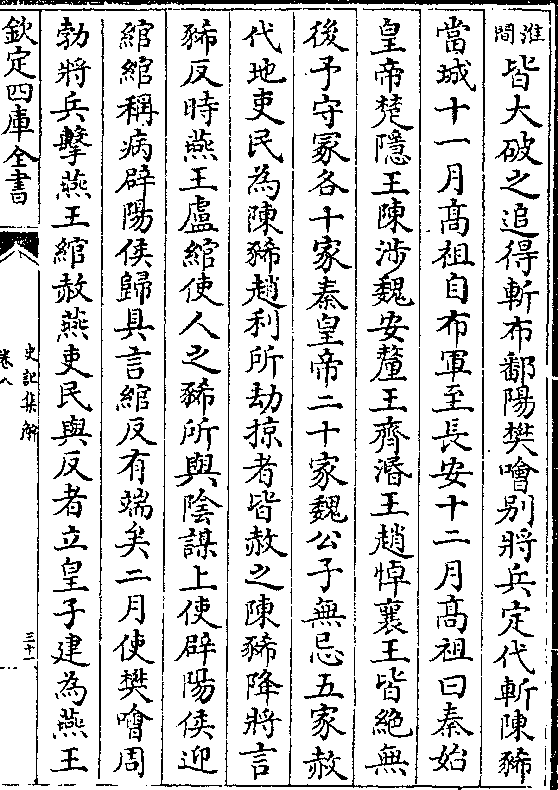 淮間皆大破之追得斬布鄱陽樊噲别將兵定代斬陳豨
當城十一月髙祖自布軍至長安十二月髙祖曰秦始
皇帝楚隱王陳涉魏安釐王齊湣王趙悼襄王皆絶無
後予守冢各十家秦皇帝二十家魏公子無忌五家赦
代地吏民為陳豨趙利所劫掠者皆赦之陳豨降將言
豨反時燕王盧綰使人之豨所與陰謀上使辟陽侯迎
綰綰稱病辟陽侯歸具言綰反有端矣二月使樊噲周
勃將兵擊燕王綰赦燕吏民與反者立皇子建為燕王
欽定四庫全書
史記集解
卷八
三十一